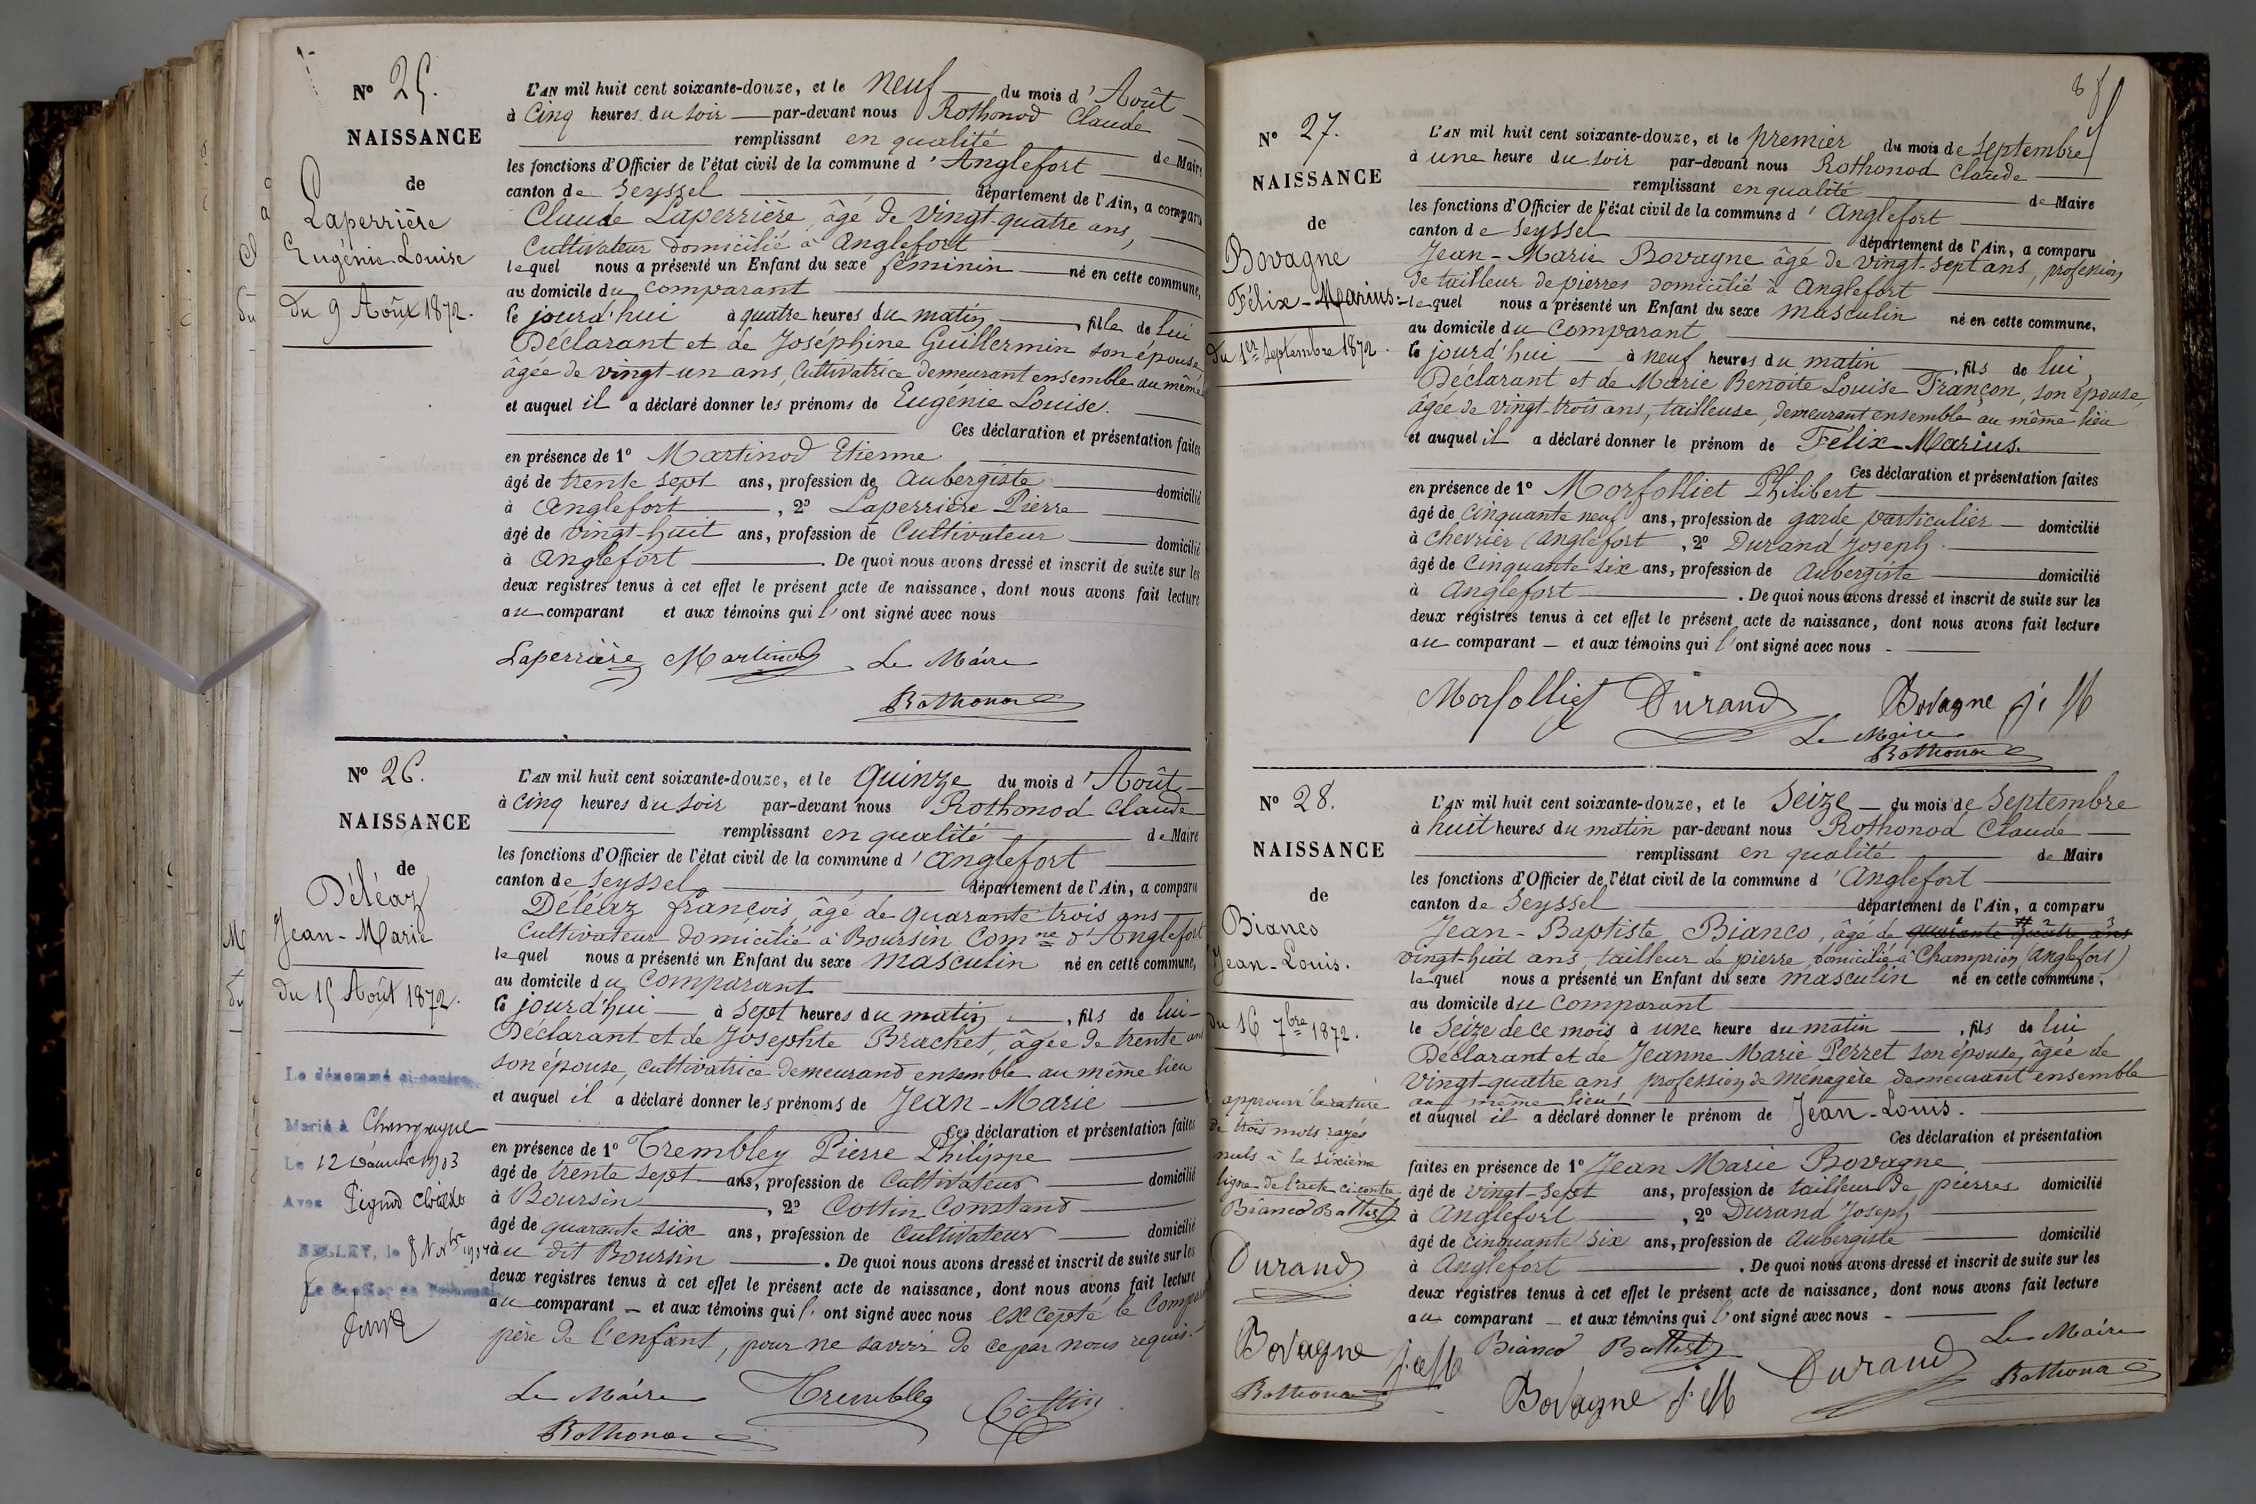 N° 25.
NAISSANCE
de
Laperrière
Eugénie Louise
du 9 Août 1872.
L'AN mil huit cent soixante-douze, et le neuf du mois d'Août
à cinq heures du soir par-devant nous Rothonod Claude
remplissant en qualité de Maire
les fonctions d'Officier de l'état civil de la commune d'Anglefort
canton de Seyssel département de l'Ain, a comparu
Claude Laperrière âgé de vingt-quatre ans,
Cultivateur domicilié à Anglefort
lequel nous a présenté un Enfant du sexe féminin né en cette commune,
au domicile du comparant
ce jourd'hui à quatre heures du matin, fille de lui
Déclarant et de Joséphine Guillermin son épouse,
âgée de vingt-un ans, Cultivatrice demeurant ensemble au même
et auquel il a déclaré donner les prénoms de Eugénie Louise.
Ces déclaration et présentation faites
en présence de 1° Martinod Etienne
âgé de trente sept ans, profession de Aubergiste domicilié
à Anglefort, 2° Laperrière Pierre
âgé de vingt-huit ans, profession de Cultivateur domicilié
à Anglefort. De quoi nous avons dressé et inscrit de suite sur les
deux registres tenus à cet effet le présent acte de naissance, dont nous avons fait lecture
au comparant et aux témoins qui l'ont signé avec nous
Laperrière Martinod Le Maire
Rothonod
N° 26.
NAISSANCE
de
Déléaz
Jean-Marie
du 15 Août 1872.
Le dénommé ci-contre
Marié à Champagne
Le 12 1903
Avec Pignod
BELLEY, le 8 1904
L'AN mil huit cent soixante-douze, et le quinze du mois d'Août
à cinq heures du soir par-devant nous Rothonod Claude
remplissant en qualité de Maire
les fonctions d'Officier de l'état civil de la commune d'Anglefort
canton de Seyssel département de l'Ain, a comparu
Déléaz françois, âgé de quarante trois ans
Cultivateur domicilié à Boursin Comne d'Anglefort
lequel nous a présenté un Enfant du sexe masculin né en cette commune,
au domicile du comparant
ce jourd'hui à sept heures du matin, fils de lui
Déclarant et de Josephte Brachet, âgée de trente ans
son épouse, cultivatrice demeurand ensemble au même lieu
et auquel il a déclaré donner les prénoms de Jean-Marie
Ces déclaration et présentation faites
en présence de 1° Trembley Pierre Philippe
âgé de trente sept ans, profession de Cultivateur domicilié
à Boursin, 2° Cottin Constand
âgé de quarante six ans, profession de Cultivateur domicilié
àu dit Boursin. De quoi nous avons dressé et inscrit de suite sur les
deux registres tenus à cet effet le présent acte de naissance, dont nous avons fait lecture
au comparant et aux témoins qui l'ont signé avec nous excepté le
père de l'enfant, pour ne savoir de ce par nous requis.
Le Maire Trembley Cottin
Rothonod
N° 27.
NAISSANCE
de
Bovagne
Félix-Marius
du 1er Septembre 1872.
L'AN mil huit cent soixante-douze, et le premier du mois de Septembre
à une heure du soir par-devant nous Rothonod Claude
remplissant en qualité de Maire
les fonctions d'Officier de l'état civil de la commune d'Anglefort
canton de Seyssel département de l'Ain, a comparu
Jean-Marie Bovagne âgé de vingt-sept ans, profession
de tailleur de pierres domicilié à Anglefort
lequel nous a présenté un Enfant du sexe masculin né en cette commune,
au domicile du comparant
ce jourd'hui à neuf heures du matin, fils de lui,
Déclarant et de Marie Benoite Louise Françon, son épouse,
âgée de vingt-trois ans, tailleuse, demeurant ensemble au même lieu
et auquel il a déclaré donner le prénom de Félix-Marius.
Ces déclaration et présentation faites
en présence de 1° Morfolliet Philibert
âgé de cinquante neuf ans, profession de garde particulier domicilié
à chevrier (anglefort, 2° Durand Joseph
âgé de cinquante six ans, profession de Aubergiste domicilié
à Anglefort. De quoi nous avons dressé et inscrit de suite sur les
deux registres tenus à cet effet le présent acte de naissance, dont nous avons fait lecture
au comparant et aux témoins qui l'ont signé avec nous
Morfolliet Durand Bovagne
Le Maire
Rothonod
N° 28.
NAISSANCE
de
Bianco
Jean-Louis.
du 16 7bre 1872.
approuvé la rature
de trois mots rayés
nuls à la sixième
ligne de l'acte ci-contre
Bianco Battist
Durand
Bovagne
Rothonod
L'AN mil huit cent soixante-douze, et le seize du mois de Septembre
à huit heures du matin par-devant nous Rothonod Claude
remplissant en qualité de Maire
les fonctions d'Officier de l'état civil de la commune d'Anglefort
canton de Seyssel département de l'Ain, a comparu
Jean-Baptiste Bianco, âgé de quarante quatre ans
vingt-huit ans tailleur de pierre, domicilié à Champrion (Anglefort)
lequel nous a présenté un Enfant du sexe masculin né en cette commune,
au domicile du comparant
le seize de ce mois à une heure du matin, fils de lui
Déclarant et de Jeanne Marie Perret son épouse, âgée de
vingt-quatre ans profession de ménagère demeurant ensemble
au même lieu
et auquel il a déclaré donner le prénom de Jean-Louis.
Ces déclaration et présentation
faites en présence de 1° Jean Marie Bovagne
âgé de vingt-sept ans, profession de tailleur de pierres domicilié
à Anglefort, 2° Durand Joseph
âgé de cinquante six ans, profession de Aubergiste domicilié
à Anglefort. De quoi nous avons dressé et inscrit de suite sur les
deux registres tenus à cet effet le présent acte de naissance, dont nous avons fait lecture
au comparant et aux témoins qui l'ont signé avec nous
Bianco Battist Durand Le Maire
Bovagne Rothonod